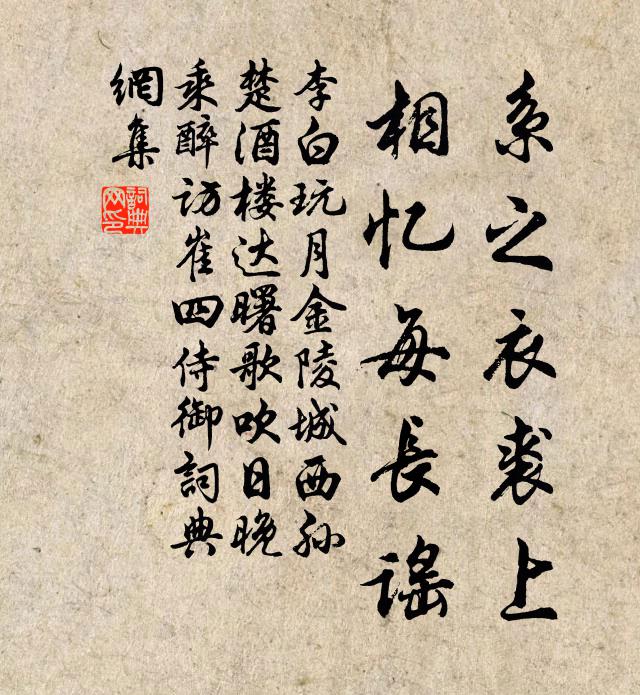 系之衣裘上
相忆每長謡
李白玩月金陵城西孙
楚酒楼达曙歌吹日晚
乘醉访崔四侍御詞典
網集
詞典
网印